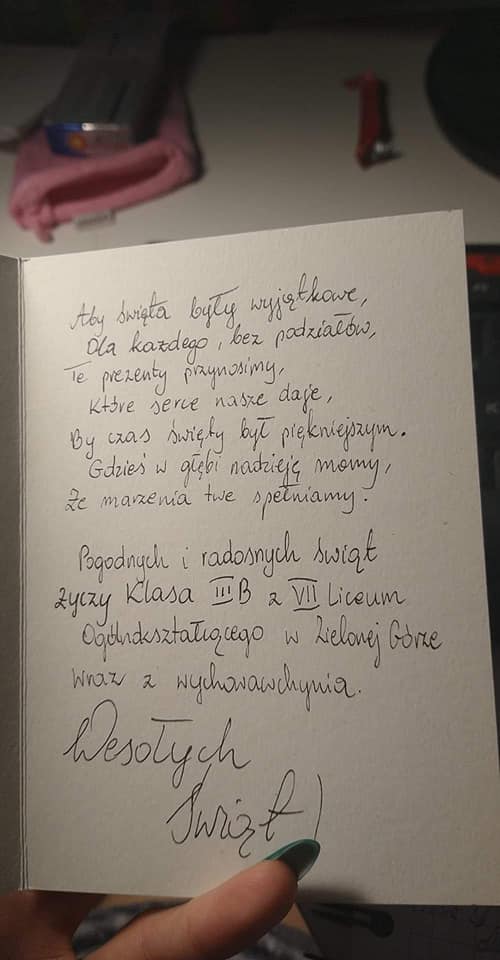 Aby święta były wyjątkowe,
Dla każdego, bez podziałów,
Te prezenty przynosimy,
Które serce nasze daje,
By czas święty był piękniejszym.
Gdzieś w głębi nadzieję mamy,
Że marzenia twe spełniamy.
Pogodnych i radosnych świąt
życzy Klasa III B z VII Liceum
Ogólnokształcącego w Zielonej Górze
wraz z wychowawczynią.
Wesołych
Świąt!